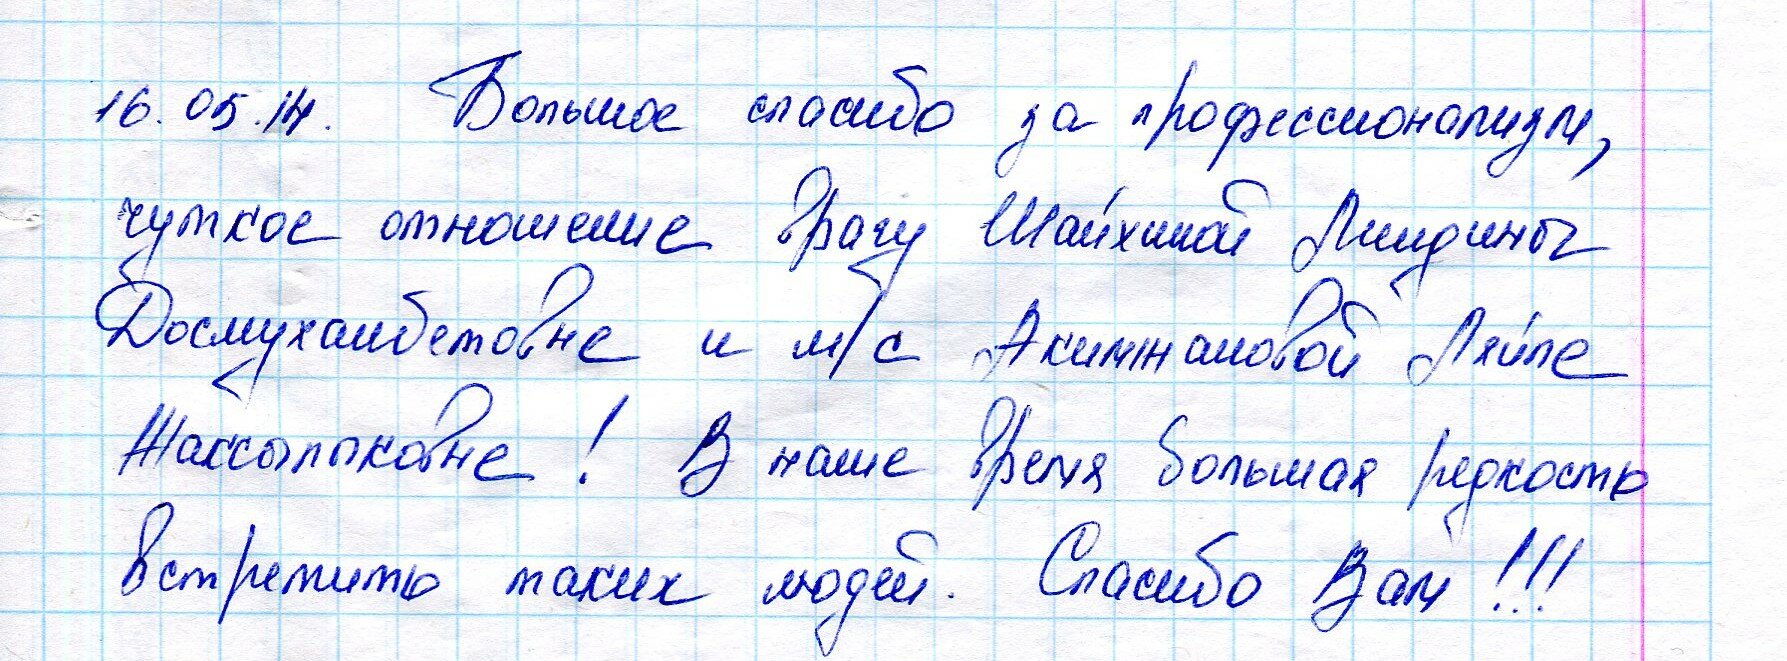 16.05.14. Большое спасибо за профессионализм,
чуткое отношение врачу Шайхиной
Досмухамбетовне и м/с Акимжановой Ляйле
Жаксылыковне! В наше время большая редкость
встретить таких людей. Спасибо Вам!!!